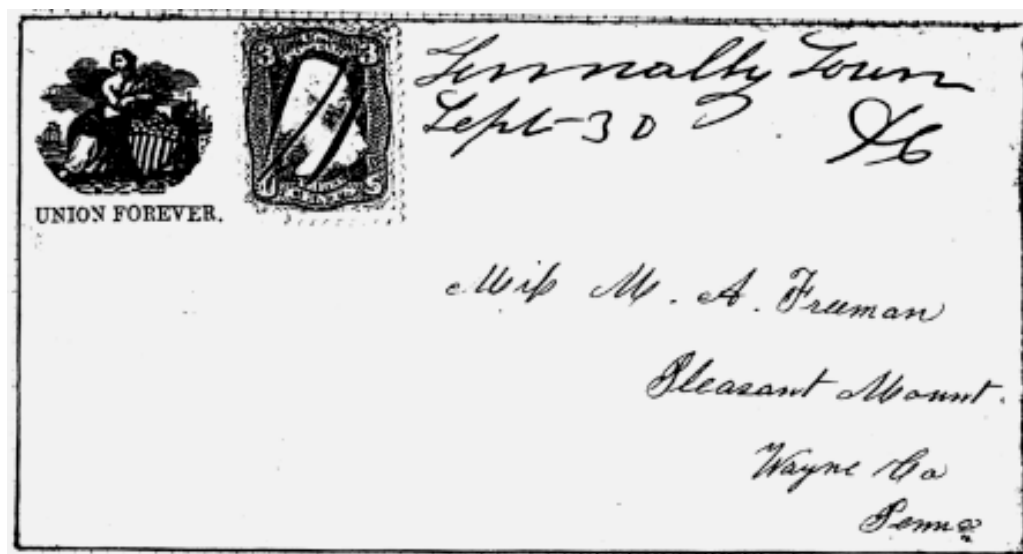 UNION FOREVER.
3 3
Tennally Town
Sept 30
DC
Miss M. A. Freeman
Pleasant Mount.
Wayne Co
Penna